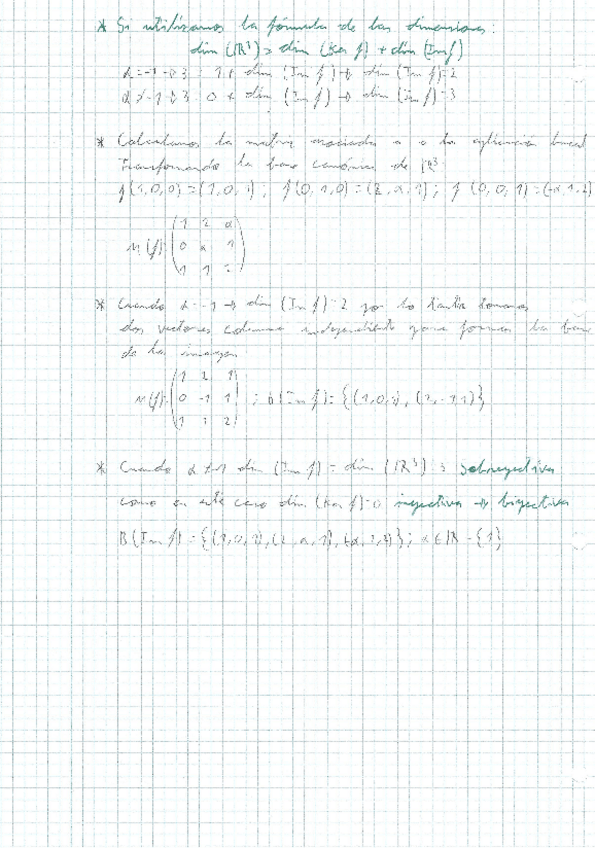 * Si utilizamos la fórmula de las dimensiones:
dim (ℝ³) = dim (Ker f) + dim (Im f)
α = -1 → 3 = 1 + dim (Im f) → dim (Im f) = 2
α ≠ -1 → 3 = 0 + dim (Im f) → dim (Im f) = 3
* Calculamos la matriz asociada a la aplicación lineal
Transformando la base canónica de ℝ³
f(1,0,0) = (1,0,1); f(0,1,0) = (2,α,1); f(0,0,1) = (-α,1,2)
M(f) =
1 2 α
0 α 1
1 1 2
* Cuando α = -1 → dim (Im f) = 2 por lo tanto tomamos
dos vectores columna independiente para formar la base
de la imagen
M(f) =
1 2 1
0 -1 1
1 1 2
; B(Im f) = {(1,0,1), (2,-1,1)}
* Cuando α ≠ -1 dim (Im f) = dim (ℝ³) = 3 sobreyectiva
como en este caso dim (Ker f) = 0 inyectiva → biyectiva
B(Im f) = {(1,0,1), (2,α,1), (-α,1,2)}; α ∈ ℝ - {1}